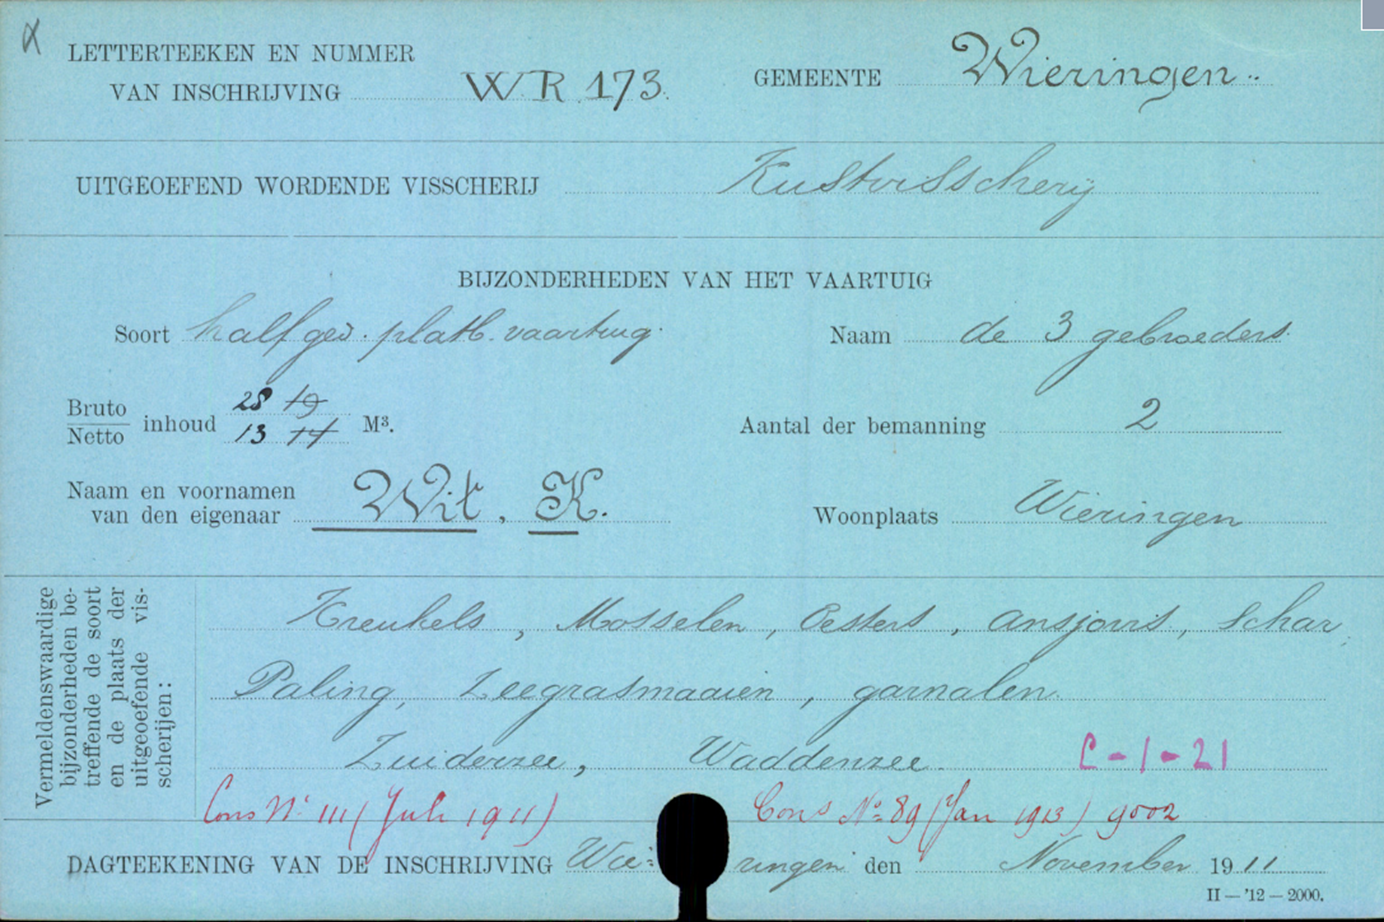 LETTERTEEKEN EN NUMMER
VAN INSCHRIJVING WR 173. GEMEENTE Wieringen
UITGEOEFEND WORDENDE VISSCHERIJ Kustvisscherij
BIJZONDERHEDEN VAN HET VAARTUIG
Soort half ged. platb. vaartuig. Naam de 3 gebroeders.
Bruto 28 19
Netto inhoud 13 14 M³. Aantal der bemanning 2
Naam en voornamen
van den eigenaar Wit, K. Woonplaats Wieringen
Vermeldenswaardige
bijzonderheden be-
treffende de soort
en de plaats der
uitgeoefende vis-
scherijen:
Kreukels, Mosselen, Oesters, Ansjovis, Schar,
Paling, Zeegrasmaaien, garnalen
Zuiderzee, Waddenzee. C-1-21
Cons No 111 (Juli 1911) Cons No 89 (Jan 1913) 9002
DAGTEEKENING VAN DE INSCHRIJVING Wie- ringen den November 1911
II — '12 — 2000.